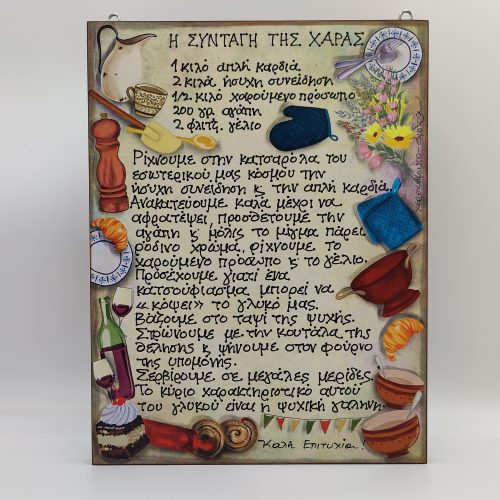 Η ΣΥΝΤΑΓΗ ΤΗΣ ΧΑΡΑΣ
1 κιλό απλή καρδιά
2 κιλά ήσυχη συνείδηση
1/2 κιλό χαρούμενο πρόσωπο
200 γρ. αγάπη
2 φλιτζ. γέλιο
Ρίχνουμε στην κατσαρόλα του
εσωτερικού μας κόσμου την
ήσυχη συνείδηση κ την απλή καρδιά.
Ανακατεύουμε καλά μέχρι να
αφρατέψει, προσθέτουμε την
αγάπη κ μόλις το μίγμα πάρει
ρόδινο χρώμα, ρίχνουμε το
χαρούμενο πρόσωπο κ το γέλιο.
Προσέχουμε γιατί ένα
κατσούφιασμα μπορεί να
«κόψει» το γλυκό μας.
Βάζουμε στο ταψί της ψυχής.
Στρώνουμε με την κουτάλα της
θέλησης κ ψήνουμε στον φούρνο
της υπομονής.
Σερβίρουμε σε μεγάλες μερίδες
Το κύριο χαρακτηριστικό αυτού
του γλυκού είναι η ψυχική γαλήνη.
Καλή Επιτυχία.